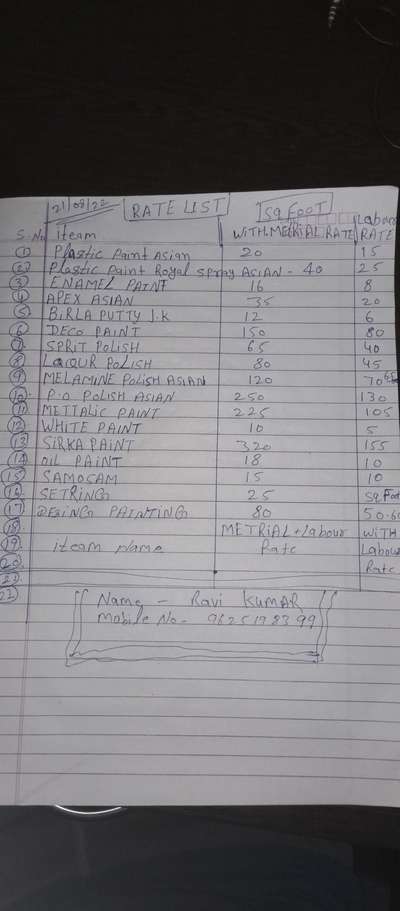 21/08/22 RATE LIST SQ FOOT
S.No iteam WITH METRIAL RATE Labour RATE
1 Plastic Paint Asian 20 15
2 Plastic Paint Royal Spray ASIAN - 40 25
3 ENAMEL PAINT 16 8
4 APEX ASIAN 35 20
5 BIRLA PUTTY J.K 12 6
6 DECO PAINT 150 80
7 SPRIT POLISH 65 40
8 LAIQUR POLISH 80 45
9 MELAMINE POLISH ASIAN 120 70
10 P.O POLISH ASIAN 250 130
11 METTALIC PAINT 225 105
12 WHITE PAINT 10 5
13 SIRKA PAINT 320 155
14 OIL PAINT 18 10
15 SAMOCAM 15 10
16 SETRING 25 SQ Foot
17 DESING PAINTING 80
18 METRIAL + Labour WITH
19 iteam Name Rate Labour
20 Rate
Name - Ravi KUMAR
Mobile No -